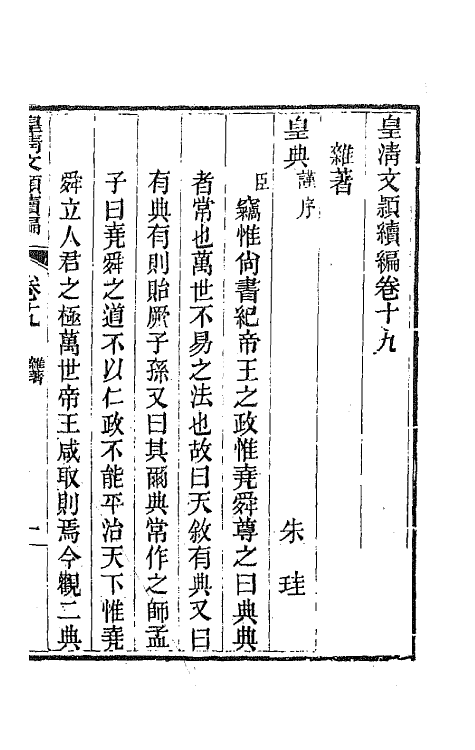 皇清文穎續編卷十九
雜著
皇典謹序 朱珪
臣竊惟尚書紀帝王之政惟堯舜尊之曰典典
者常也萬世不易之法也故曰天敘有典又曰
有典有則貽厥子孫又曰其爾典常作之師孟
子曰堯舜之道不以仁政不能平治天下惟堯
舜立人君之極萬世帝王咸取則焉今觀二典
皇清文穎續編 卷十九 雜著 一